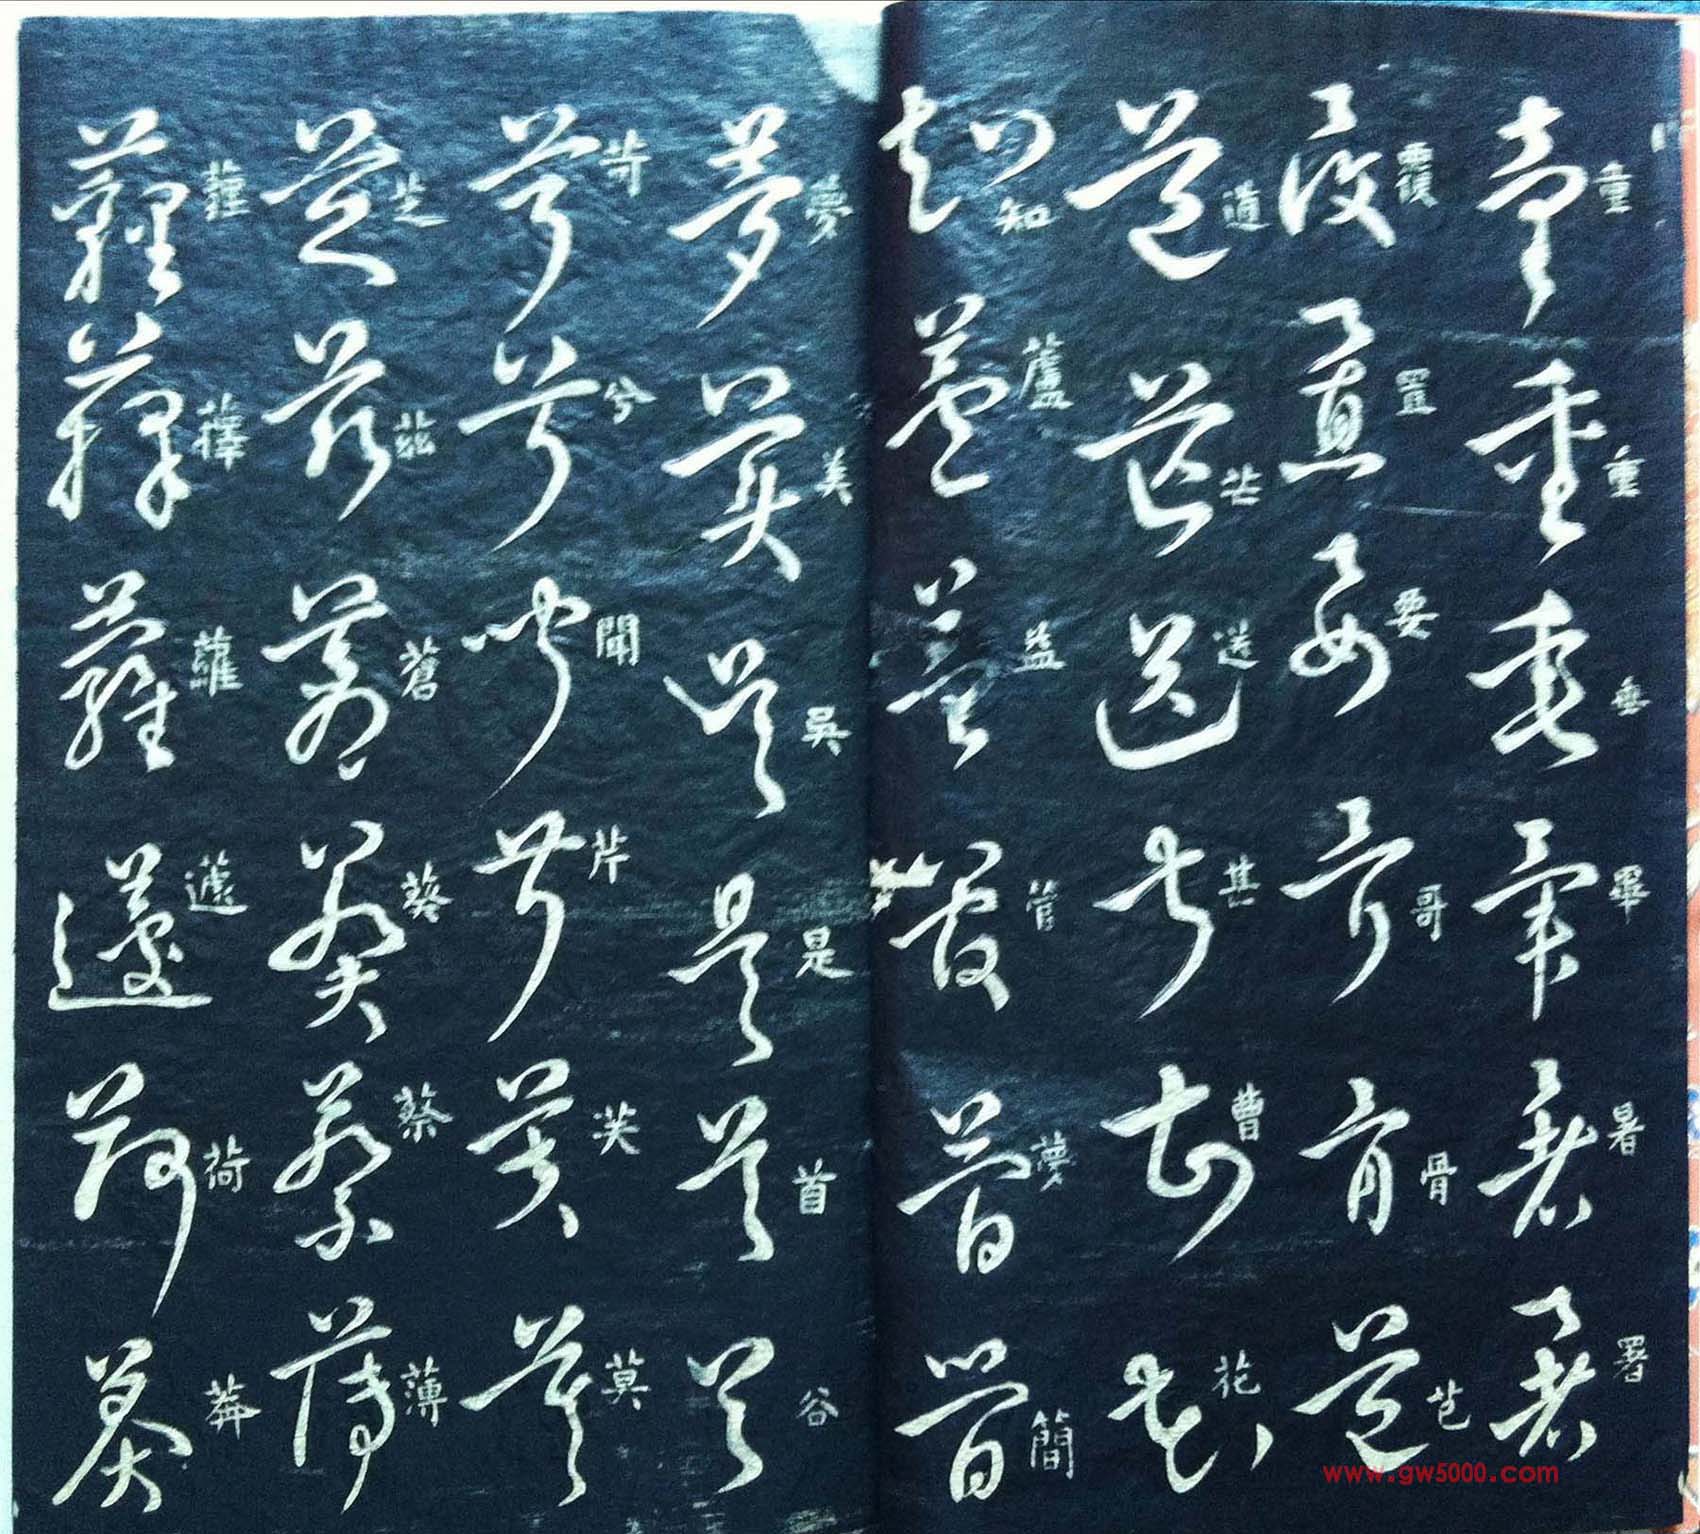 童重垂畢暑署
覆置要哥骨芭
道芒送甚曹花
知蘆益管夢簡
夢美吳是首谷
兮聞芹芙莫
芝茲蒼葵蔡薄
蘀蘿蘧荷莽
www.gw5000.com